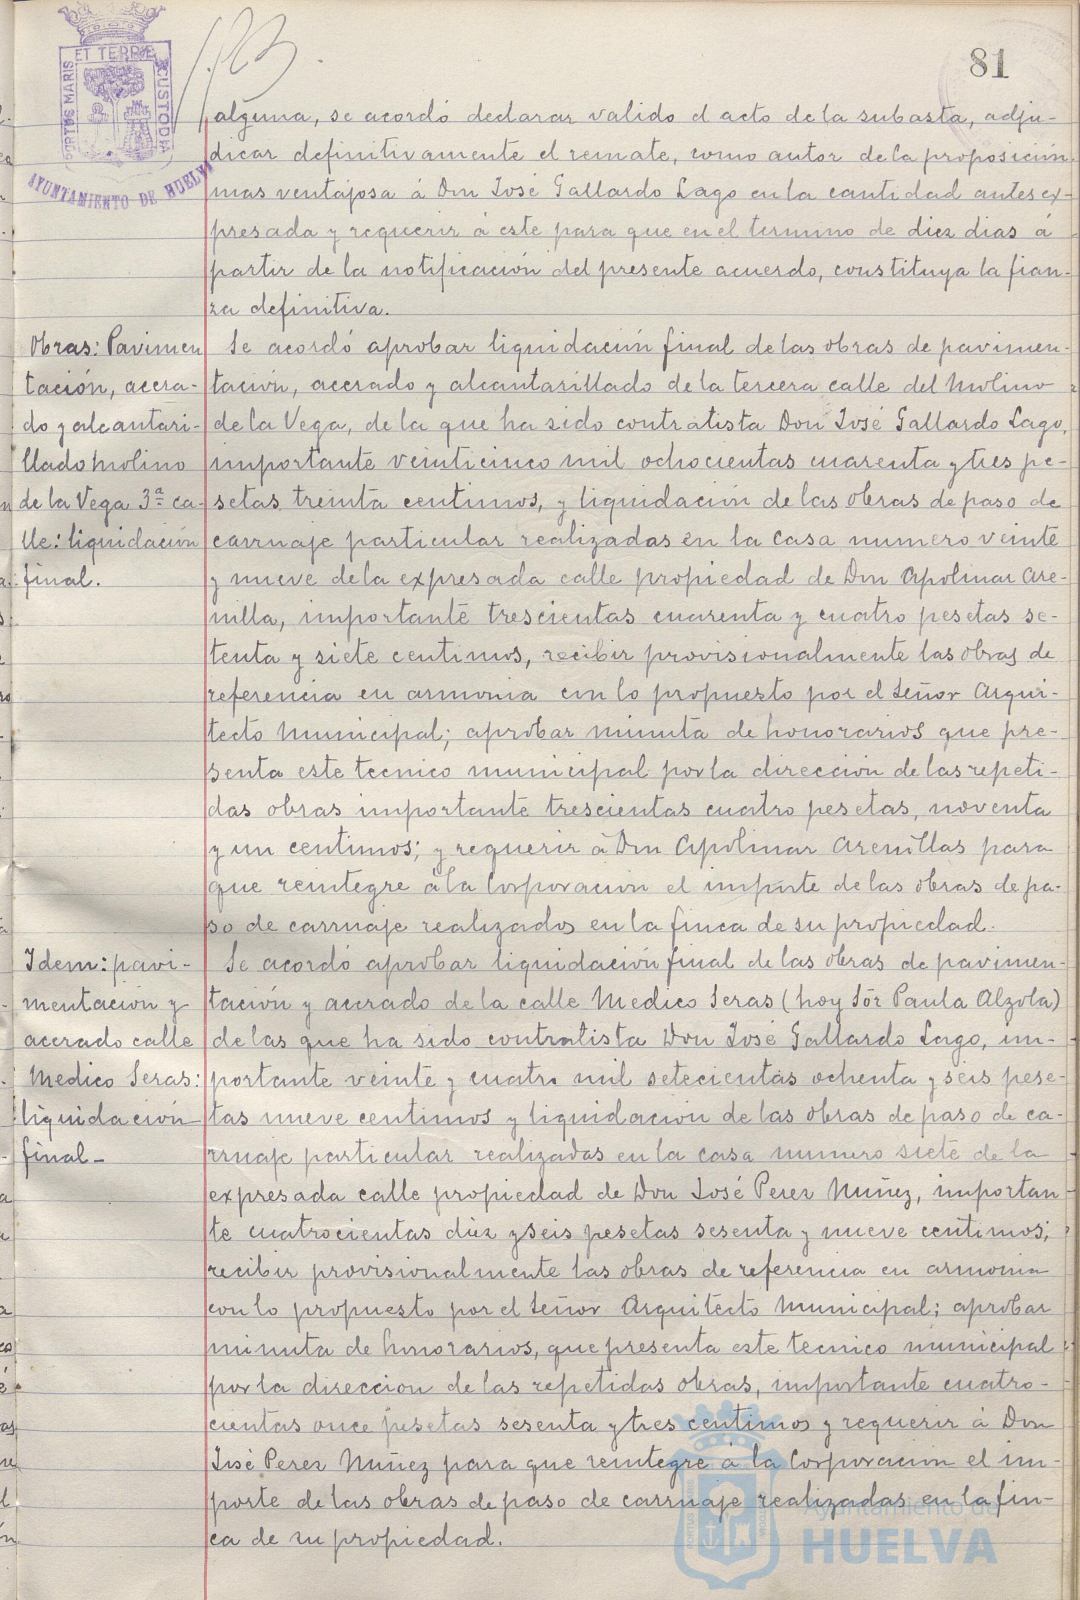 81
PORTUS MARIS ET TERRE CUSTODIA
AYUNTAMIENTO DE HUELVA
alguna, se acordó declarar valido el acto de la subasta, adju-
dicar definitivamente el remate, como autor de la proposición
mas ventajosa á Don José Gallardo Lago en la cantidad antes ex-
presada y requerir á este para que en el termino de diez dias á
partir de la notificación del presente acuerdo, constituya la fian-
za definitiva.
Obras: Pavimen
tación, acera-
do y alcantari-
llado Molino
de la Vega 3ª ca-
lle: liquidación
final.
Se acordó aprobar liquidación final de las obras de pavimen-
tación, acerado y alcantarillado de la tercera calle del Molino
de la Vega, de la que ha sido contratista Don José Gallardo Lago,
importante veinticinco mil ochocientas cuarenta y tres pe-
setas treinta centimos, y liquidación de las obras de paso de
carruaje particular realizadas en la casa numero veinte
y nueve de la expresada calle propiedad de Don Apolinar Are-
nilla, importante trescientas cuarenta y cuatro pesetas se-
tenta y siete centimos, recibir provisionalmente las obras de
referencia en armonia con lo propuesto por el Señor Arqui-
tecto Municipal; aprobar minuta de honorarios que pre-
senta este tecnico municipal por la dirección de las repeti-
das obras importante trescientas cuatro pesetas, noventa
y un centimos; y requerir á Don Apolinar Arenillas para
que reintegre á la Corporación el importe de las obras de pa-
so de carruaje realizados en la finca de su propiedad.
Idem: pavi-
mentación y
acerado calle
Medico Seras:
liquidación
final-
Se acordó aprobar liquidación final de las obras de pavimen-
tación y acerado de la calle Medico Seras (hoy Sor Paula Alzola)
de las que ha sido contratista Don José Gallardo Lago, im-
portante veinte y cuatro mil setecientas ochenta y seis pese-
tas nueve centimos y liquidación de las obras de paso de ca-
rruaje particular realizadas en la casa numero siete de la
expresada calle propiedad de Don José Perez Nuñez, importan
te cuatrocientas diez y seis pesetas sesenta y nueve centimos;
recibir provisionalmente las obras de referencia en armonia
con lo propuesto por el Señor Arquitecto Municipal; aprobar
minuta de honorarios, que presenta este tecnico municipal
por la direccion de las repetidas obras, importante cuatro-
cientas once pesetas sesenta y tres centimos y requerir á Don
José Perez Nuñez para que reintegre á la Corporación el im-
porte de las obras de paso de carruaje realizadas en la fin-
ca de su propiedad.
Ayuntamiento de
HUELVA